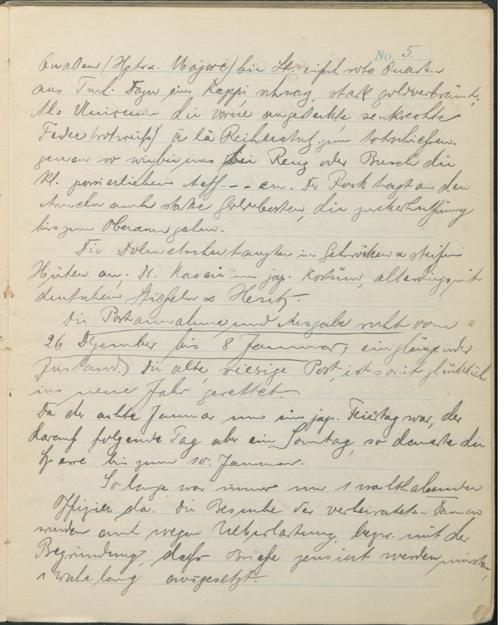 No. 5.
Quasten (Hptm. Majore) bis Lt. eine rote Quaste
aus Tuch. Dazu ein Kappi schwarz, stark goldverbrämt.
Als Unicum die vorne angesteckte senkrechte
Feder (rotweiß) à la Reiherstutz: zum totschießen.
genau so wie bei uns bei Renz oder Busch die
kl. possierlichen Aff--en. Der Rock tragt an den
Ärmeln auch starke Goldborten, die
bis zum Oberarm gehen.
Die Dolmetscher tauchten in Gehröcken & steifen
Hüten an. Dr. Kasai in jap. Kostüm, allerdings mit
deutschen Stiefeln &
Die Postannahme und Ausgabe ruht vom
26 Dezember bis 8 Januar, ein glänzender
Zustand. Die alte, riesige Post, ist somit glücklich
ins neue Jahr gerettet.
Da der achte Januar nun ein jap. Feiertag war, der
darauf folgende Tag aber ein Sonntag, so dauerte die
Sperre bis zum 10. Januar.
So lange war immer nur 1 wachhabender
Offizier da. Die Besuche der verheirateten Damen
wurden auch wegen Ueberlastung, bezw. mit der
Begründung, daß Briefe zensiert werden müssten,
1 Woche lang ausgesetzt.